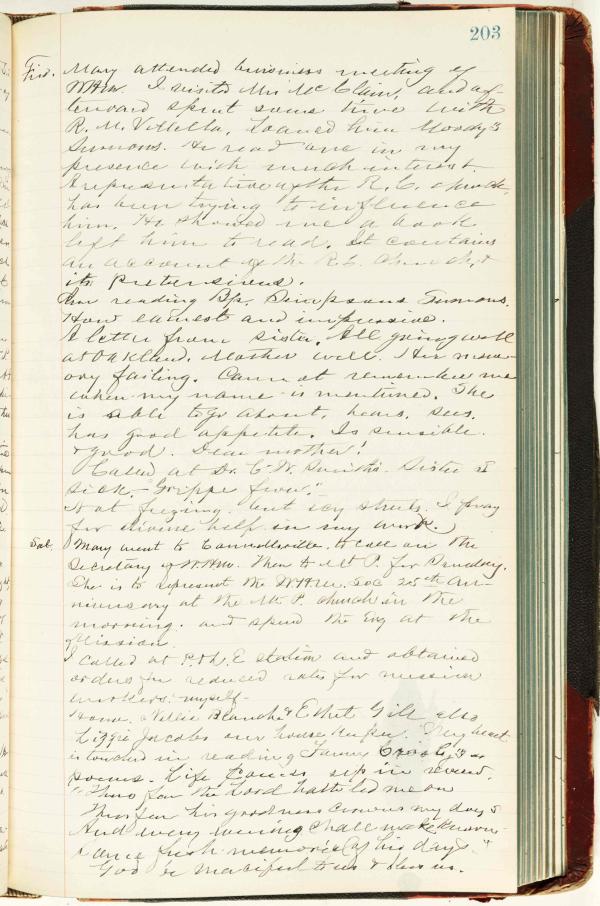 203
Frid. Mary attended business meeting of
WHM. I visited Mrs McClain, and af-
terward spent some time with
R. M. Villella, loaned him Moody's
Sermons. He read one in my
presence with much interest.
A representative of the R. C. church
has been trying to influence
him. He showed me a book
left him to read. It contains
an account of the R.C. Church, &
its pretensions.
Am reading Bp. Simpsons Sermons.
How earnest and impressive.
A letter from sister. All going well
at Oakland. Mother well. Her mem-
ory failing. Cannot remember me
when my name is mentioned. She
is able to go about, hears, sees,
has good appetite. Is sensible
& good. Dear mother!
Called at Dr. C. W. Smith's. Sister is
sick, - "Grippe fever."
Not freezing. but icy streets. I pray
for divine help in my work.
Sat. Mary went to Connellsville. to call on the
Secretary of W.HM. Then to Mt P. for Sunday.
She is to represent the WHM. Soc 25th An-
niversary at the Mt P. church in the
morning. and spend the Evg at the
Mission.
I called at station and obtained
orders for reduced rates for mission
workers. myself-
Home. Nellie Blanche & Ethel Gill also
Lizzie Jacobs our house keeper. My heart
is touched in reading Fannie Crosby's
poems. Life comes up in review.
"Thus far the Lord hath led me on
Thus far his goodness crowns my days
And every evening shall make known
Some fresh memorie of his days."
God be merciful to us & bless us.